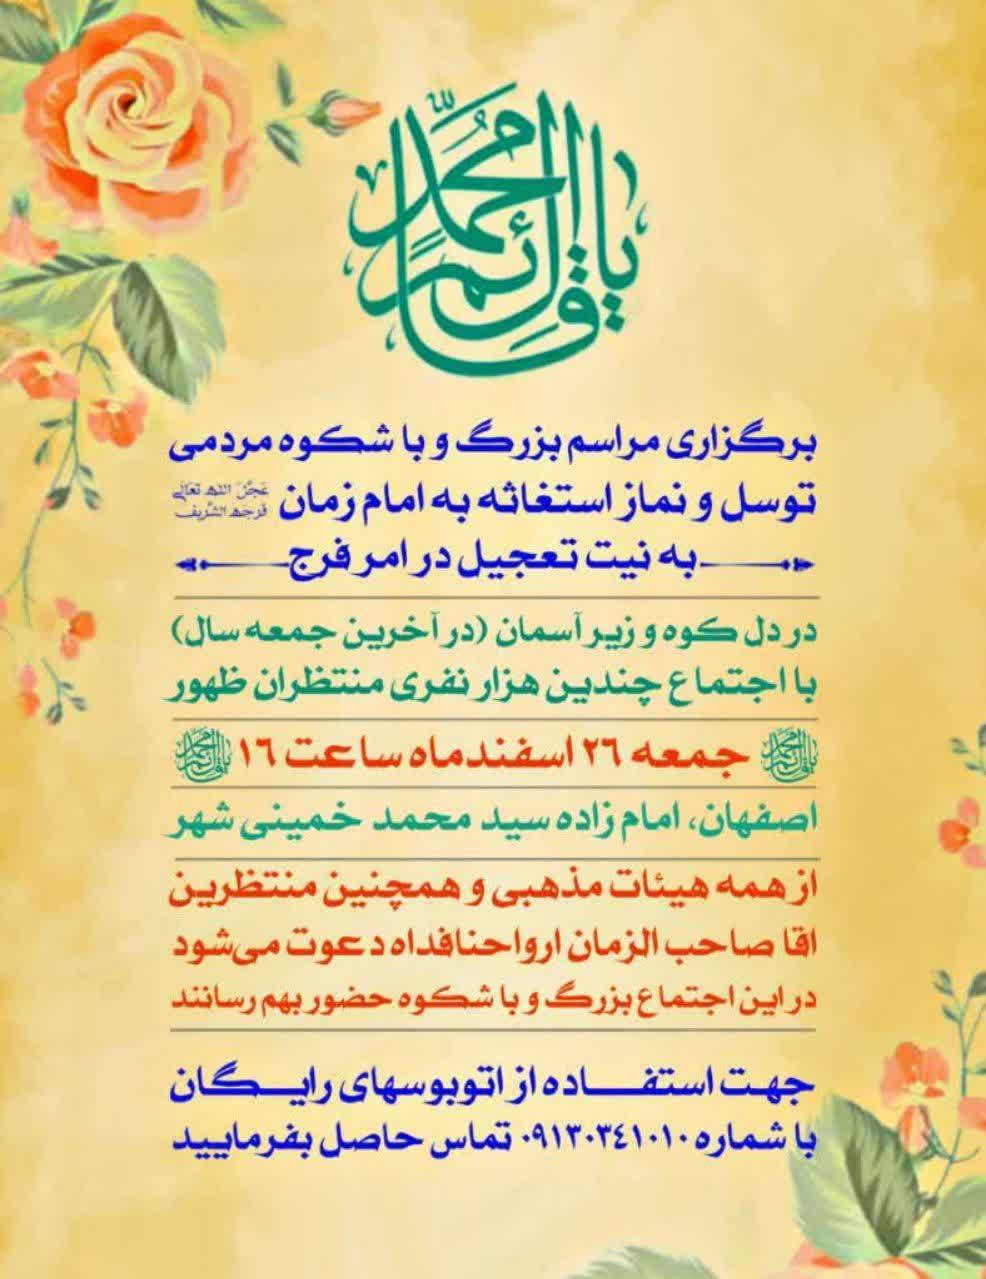 یا قائم آل محمد
برگزاری مراسم بزرگ و با شکوه مردمی
توسل و نماز استغاثه به امام زمان عَجَّلَ اللهُ تَعالی فَرَجَهُ الشَّریف
به نیت تعجیل در امر فرج
در دل کوه و زیر آسمان (در آخرین جمعه سال)
با اجتماع چندین هزار نفری منتظران ظهور
یا قائم آل محمد جمعه ۲۶ اسفندماه ساعت ۱۶ یا قائم آل محمد
اصفهان، امام زاده سید محمد خمینی شهر
از همه هیئات مذهبی و همچنین منتظرین
اقا صاحب الزمان ارواحنافداه دعوت می‌شود
در این اجتماع بزرگ و با شکوه حضور بهم رسانند
جهت استفاده از اتوبوسهای رایگان
با شماره ۰۹۱۳۰۳۴۱۰۱۰ تماس حاصل بفرمایید